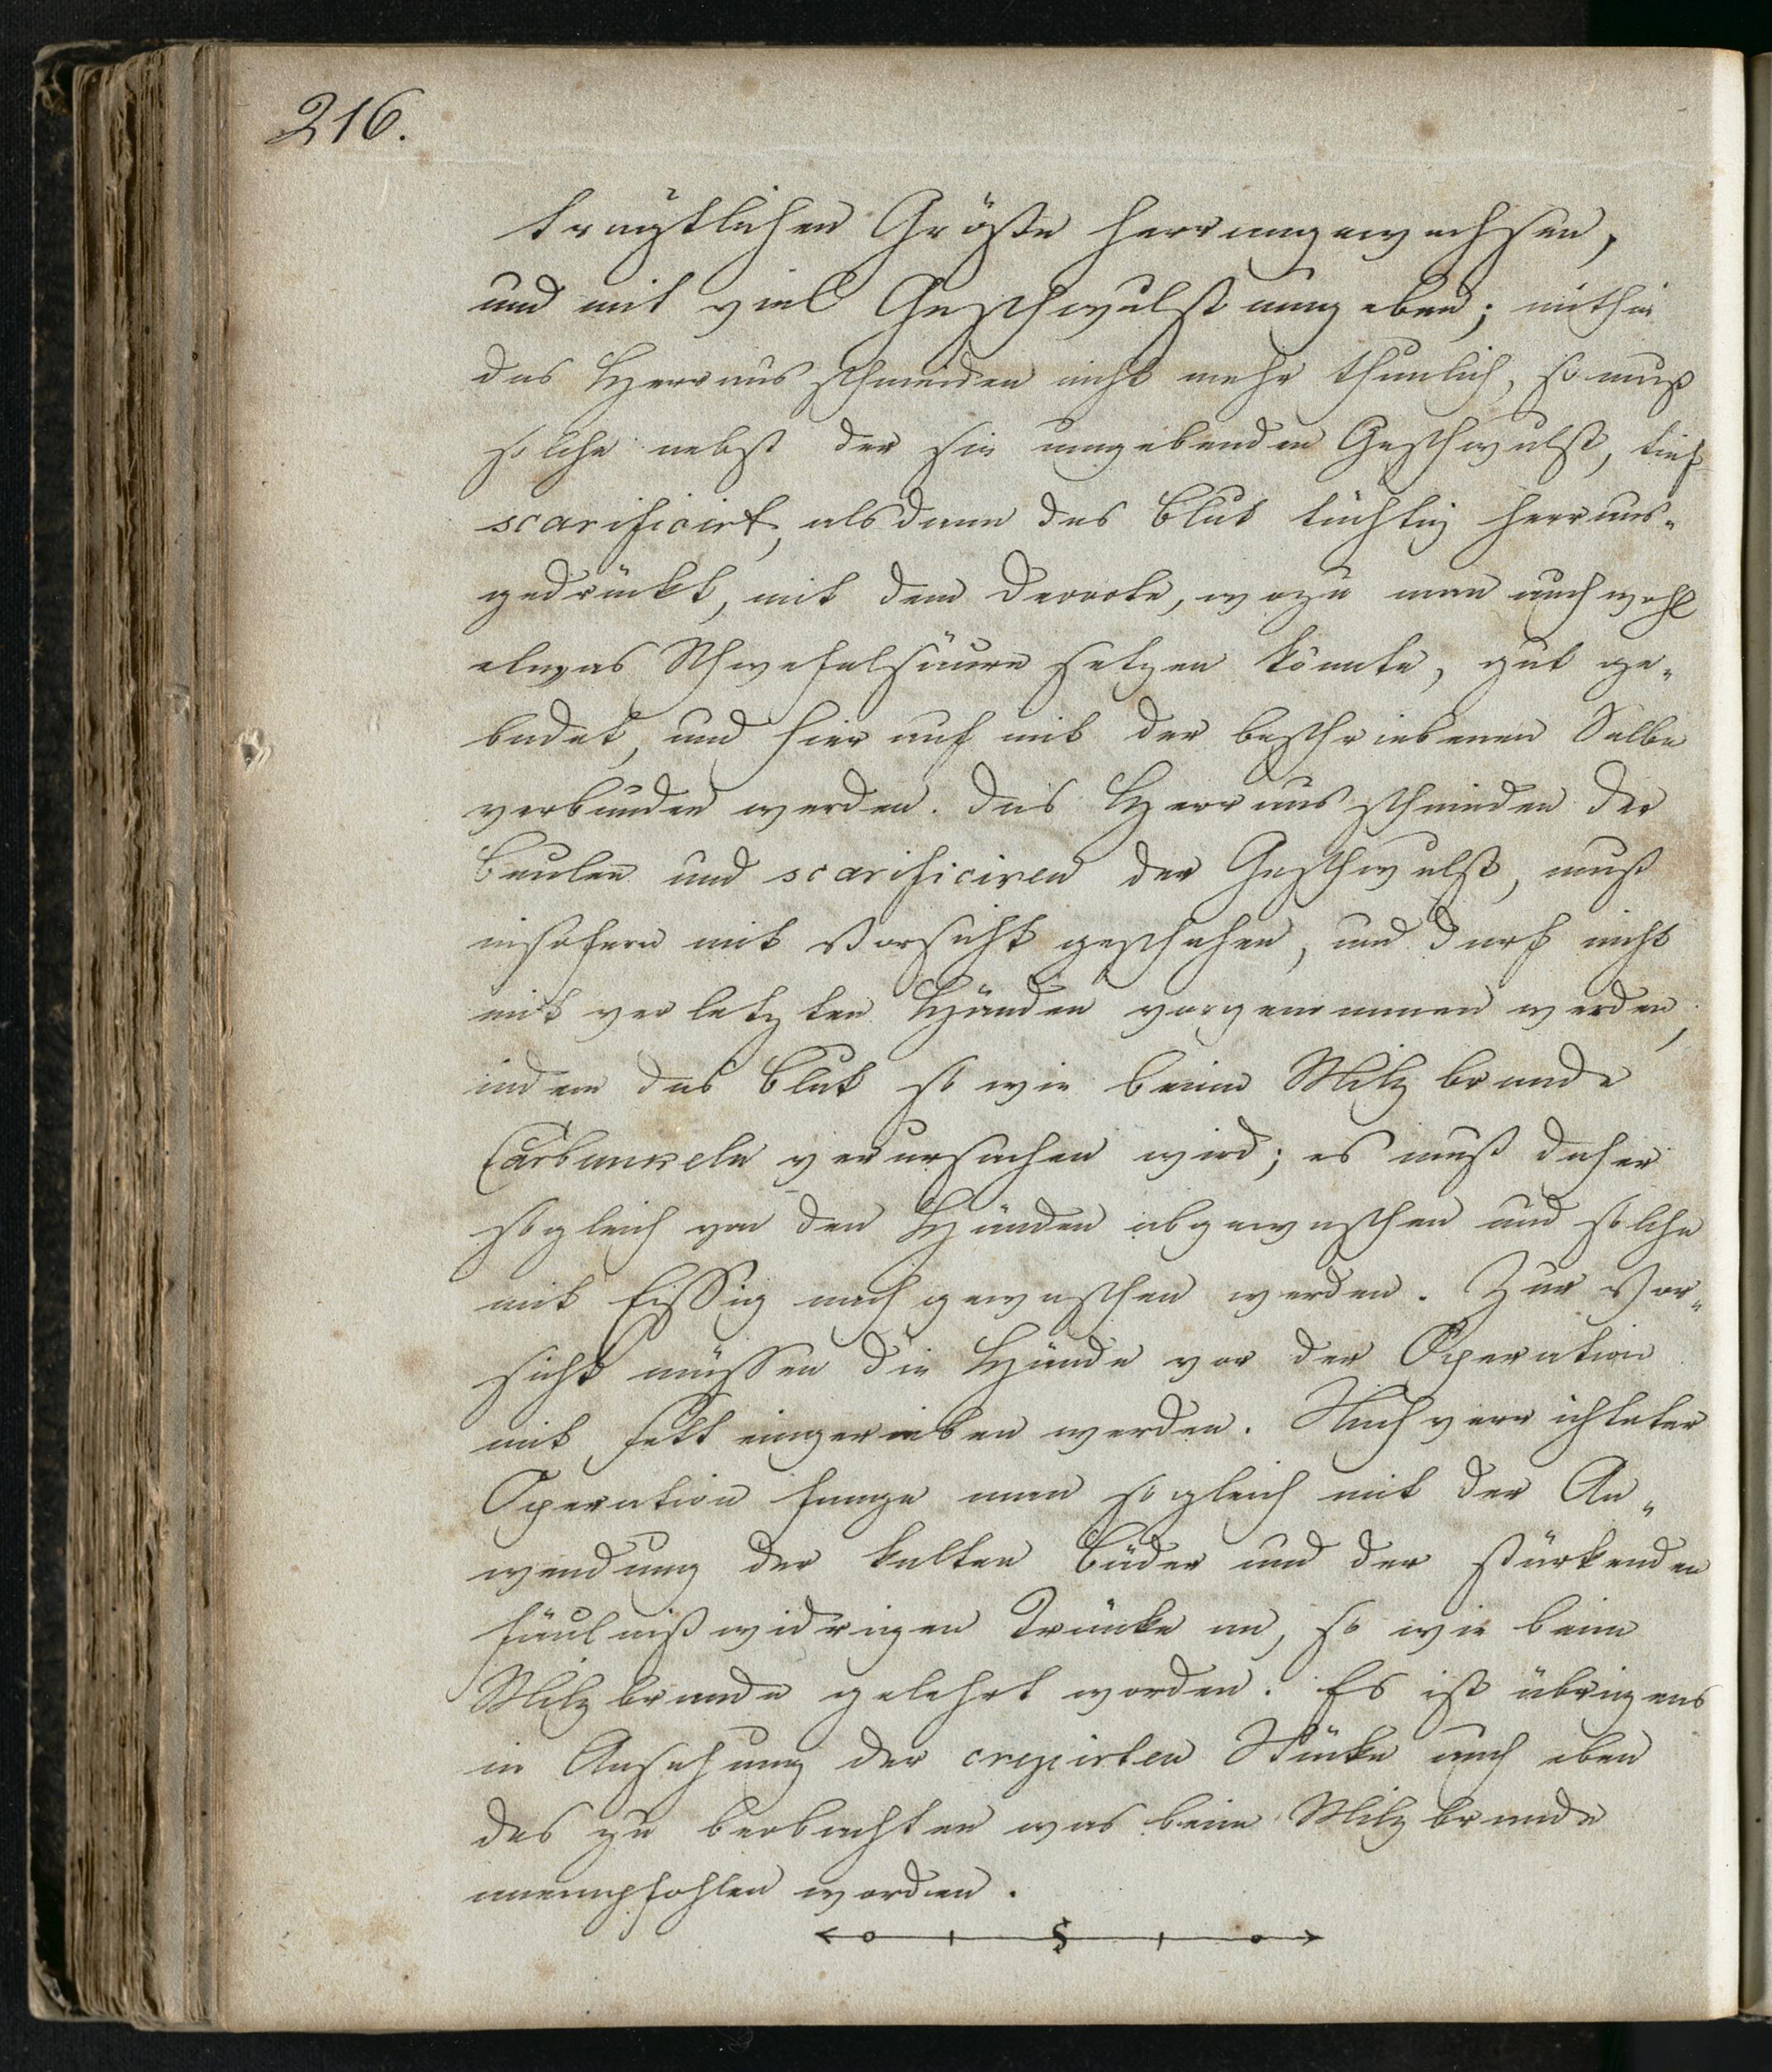 216.
trächtlichen Größe herrangewachsen,
und mit viel Geschwulst umgeben; mithin
das Herraus schneiden nicht mehr thunlich, so muß
solche nebst der sie umgebenden Geschwulst, tief
scarificirt, alsdann das Blut tüchtig herraus-
gedrückt, mit dem Decocte, wozu man auch wohl
etwas Schwefelsäure setzen könnte, gut ge-
badet, und hier auf mit der beschriebenen Salbe
verbunden werden. Das Herraus schneiden der
Beulen und scarificiren der Geschwulst, muß
insofern mit Vorsicht geschehen, und darf nicht
mit verletzten Händen vorgenommen werden,
indem das Blut so wie beim Milzbrande
Carbunkeln verursachen wird; es muß daher
sogleich von den Händen abgewaschen und solche
mit Eissig nachgewaschen werden. Zur Vor-
sicht müssen die Hände vor der Operation
mit Fett eingerieben werden. Nach verrichteter
Operation fange man sogleich mit der An-
wendung der kalten Bäder und der stärkenden
fäulnißwidrigen Tränke an, so wie beim
Milzbrande gelehrt worden. Es ist übrigens
in Ansehung der crepirten Stücke auch eben
das zu beobachten was beim Milzbrande
anempfohlen worden.